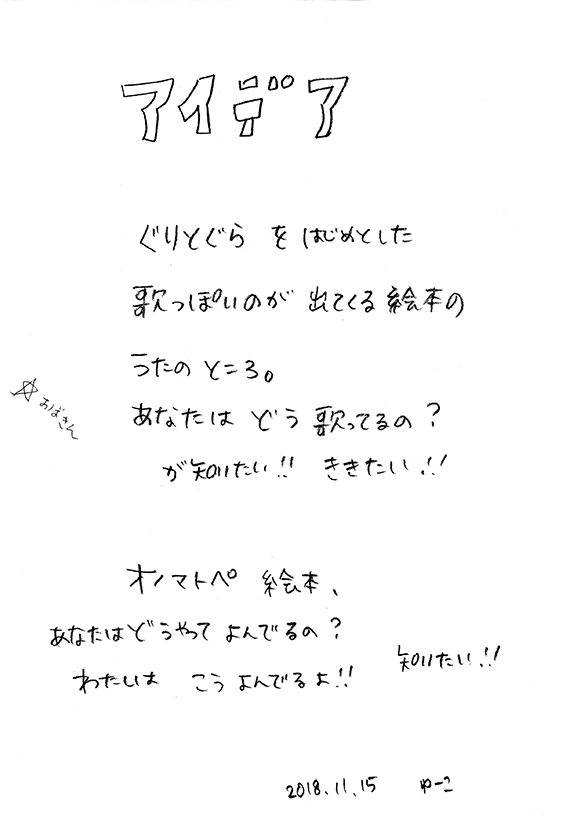 アイデア
ぐりとぐら をはじめとした
歌っぽいのが 出てくる絵本の
うたの ところ。
☆おばきん
あなたは どう歌ってるの？
が知りたい!! ききたい!!
オノマトペ 絵本、
あなたはどうやって よんでるの？
わたしは こうよんでるよ!!
知りたい!!
2018.11.15 ゆーこ